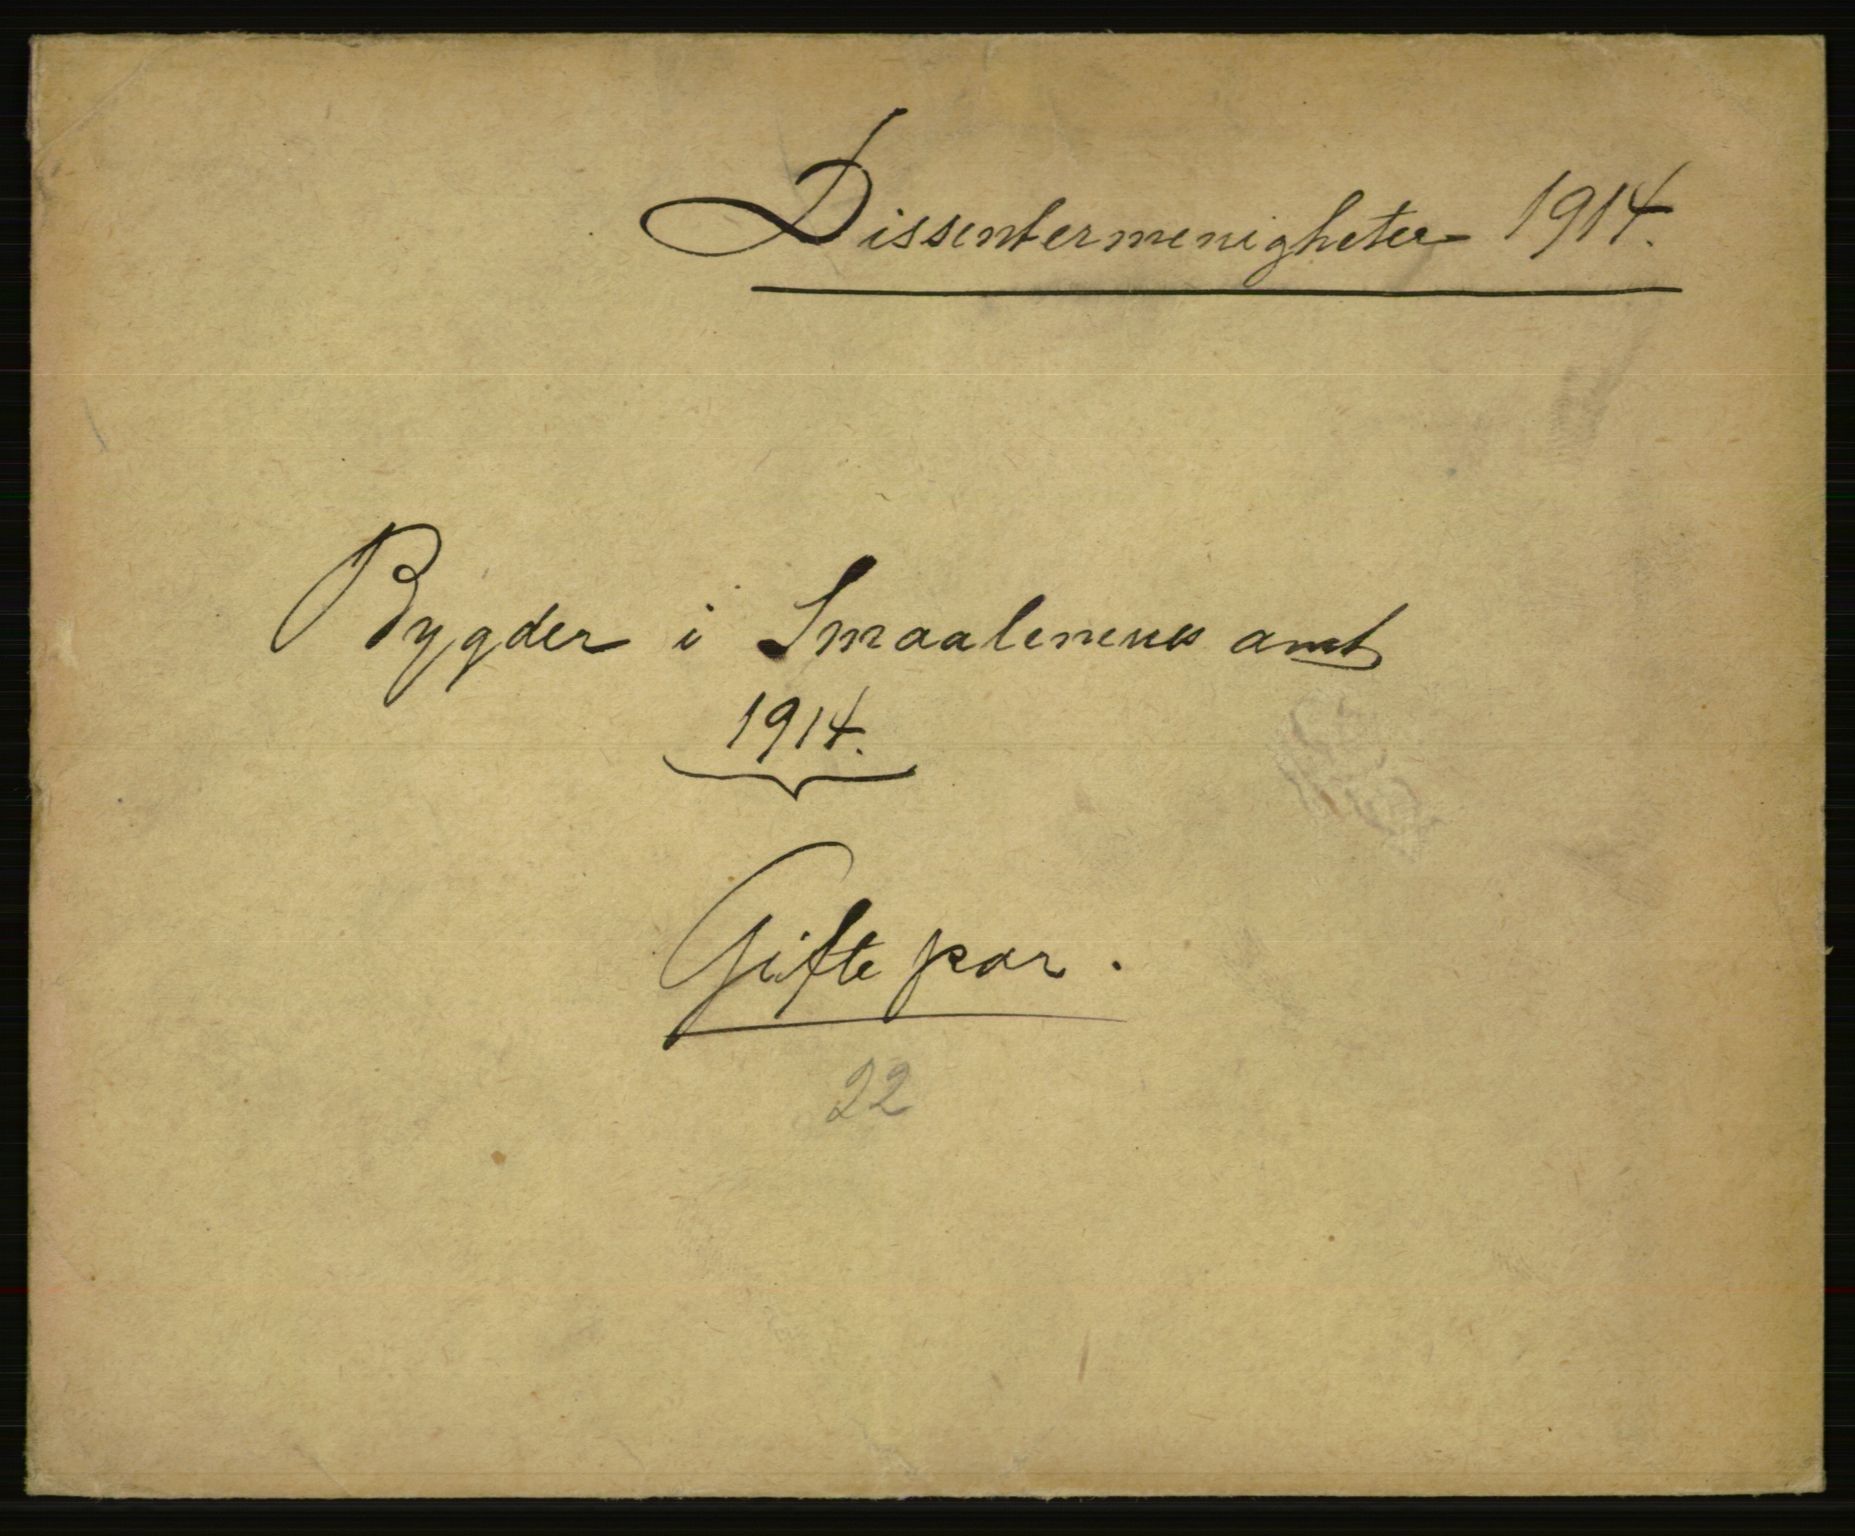 Dissentermenigheter 1914.
Bygder i Smaalenenes amt
1914.
Gifte par.
22